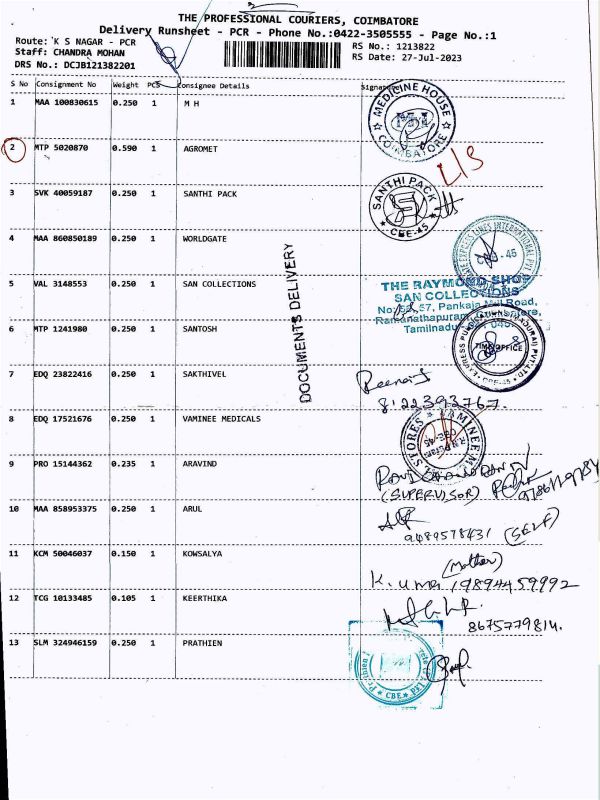 THE PROFESSIONAL COURIERS, COIMBATORE
Delivery Runsheet - PCR - Phone No.:0422-3505555 - Page No.:1
Route: K S NAGAR - PCR
RS No.: 1213822
Staff: CHANDRA MOHAN
RS Date: 27-Jul-2023
DRS No.: DCJB121382201
S No Consignment No Weight PCS Consignee Details Signature
1 MAA 100830615 0.250 1 M H
MEDICINE HOUSE
COIMBATORE
2 MTP 5020870 0.590 1 AGROMET
3 SVK 40059187 0.250 1 SANTHI PACK
SANTHI PACK
CBE-45
4 MAA 860850189 0.250 1 WORLDGATE
DOCUMENTS DELIVERY
5 VAL 3148553 0.250 1 SAN COLLECTIONS
THE RAYMOND SHOP
SAN COLLECTIONS
6 MTP 1241980 0.250 1 SANTOSH
TIME OFFICE
CBE-45
7 EDQ 23822416 0.250 1 SAKTHIVEL
8122393767.
8 EDQ 17521676 0.250 1 VAMINEE MEDICALS
9 PRO 15144362 0.235 1 ARAVIND
(SUPERVISOR)
10 MAA 858953375 0.250 1 ARUL
9489578431 (SELF)
11 KCM 50046037 0.150 1 KOWSALYA
(Mother)
K. uma 19894459992
12 TCG 10133485 0.105 1 KEERTHIKA
8675779814.
13 SLM 324946159 0.250 1 PRATHIEN
CBE